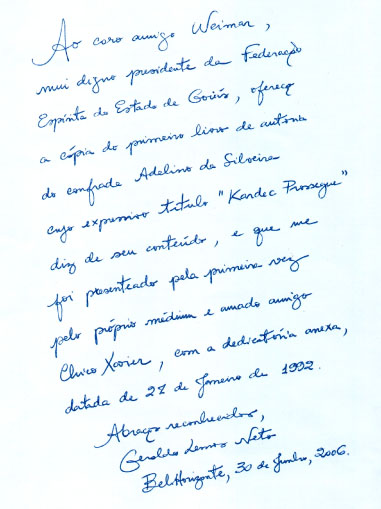 Ao caro amigo Weimar,
mui digno presidente da Federação
Espírita do Estado de Goiás, ofereço
a cópia do primeiro livro de autoria
do confrade Adelino da Silveira
cujo expressivo título "Kardec Prossegue"
diz de seu conteúdo, e que me
foi presenteado pela primeira vez
pelo próprio médium e amado amigo
Chico Xavier, com a dedicatória anexa,
datada de 27 de Janeiro de 1992.
Abraços reconhecidos,
Geraldo Lemos Neto
BelHorizonte, 30 de Junho, 2006.